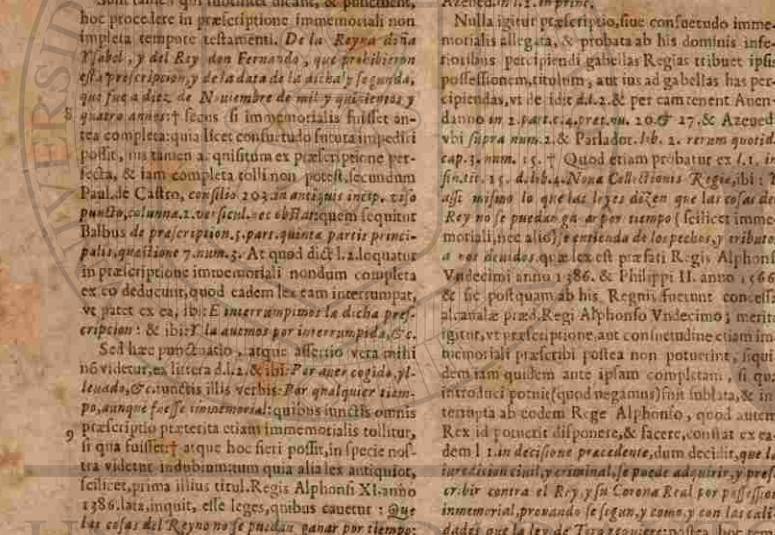 Sunt tamen qui dicant, & punctent,
hoc procedere in præscriptione immemoriali non
impleta tempore testamenti. De la Reyna doña
Ysabel, y del Rey don Fernando, que prohibieron
esta prescripcion, y de la data de la dicha l. segunda,
que fue a diez de Nouiembre de mil y quinientos y
8 quatro annos: † secus si immemorialis fuisset an-
tea completa: quia licet consuetudo futura impediri
possit, ius tamen acquisitum ex præscriptione per-
fecta, & iam completa tolli non potest, secundum
Paul. de Castro, consilio 203. in antiquis incip. viso
puncto, columna. 2. versicul. nec obstat: quem sequitur
Balbus de præscription. 5. part. quinta partis princi-
palis, quæstione 7. num. 3. At quod dict. l. 2. loquatur
in præscriptione immemoriali nondum completa
ex eo deducunt, quod eadem lex eam interrumpat,
vt patet ex ea, ibi: E interrumpimos la dicha pres-
cripcion: & ibi: Y la auemos por interrumpida, &c.
Sed hæc punctuatio, atque assertio vera mihi
nō videtur, ex littera d. l. 2. & ibi: Por auer cogido, y l-
leuado, &c. iunctis illis verbis: Por qualquier tiem-
po, aunque fuesse immemorial: quibus iunctis omnis
præscriptio præterita etiam immemorialis tollitur,
9 si qua fuisset: † atque hoc fieri possit, in specie nos-
tra videtur indubium: tum quia alia lex antiquior,
scilicet, prima illius titul. Regis Alphonsi XI. anno
1386. lata, inquit, esse leges, quibus cauetur: Que
las cosas del Reyno no se puedan ganar por tiempo:
Azeued. in l. 1. in princ.
Nulla igitur præscriptio, siue consuetudo imme-
morialis allegata, & probata ab his dominis infe-
rioribus percipiendi gabellas Regias tribuet ipsis
possessionem, titulum, aut ius ad gabellas has per-
cipiendas, vt decidit d. l. 2. & per eam tenent Auen-
danno in 2. part. c. 4. præt. nu. 20. & 27. & Azeued.
vbi supra num. 2. & Parlador. lib. 2. rerum quotid.
cap. 3. num. 15. † Quod etiam probatur ex l. 1. in
fin. tit. 15. d. lib. 4. Nouæ Collectionis Regiæ, ibi: Y
assi mismo lo que las leyes dizen que las cosas del
Rey no se puedan ganar por tiempo (scilicet imme-
moriali, nec alio) se entienda de los pechos, y tributos
a nos deuidos. quæ lex est præfati Regis Alphonsi
Vndecimi anno 1386. & Philippi II. anno 1566
& sic postquam ab his Regnis fuerunt concessæ
alcaualæ præd. Regi Alphonso Vndecimo; merito
igitur, vt præscriptione, aut consuetudine etiam im-
memoriali præscribi postea non potuerint, siqui-
dem iam quidem ante ipsam completam, si qua
introduci potuit (quod negamus) fuit sublata, & in-
terrupta ab eodem Rege Alphonso, quod autem
Rex id potuerit disponere, & facere, constat ex ea-
dem l. 1. in decisione præcedente, dum decidit, que la
iuredicion ciuil, y criminal, se puede adquirir, y pres-
cribir contra el Rey, y su Corona Real por possession
inmemorial, prouando se segun, y como, y con las cali-
dades que la ley de Toro requiere: postea hoc tem-